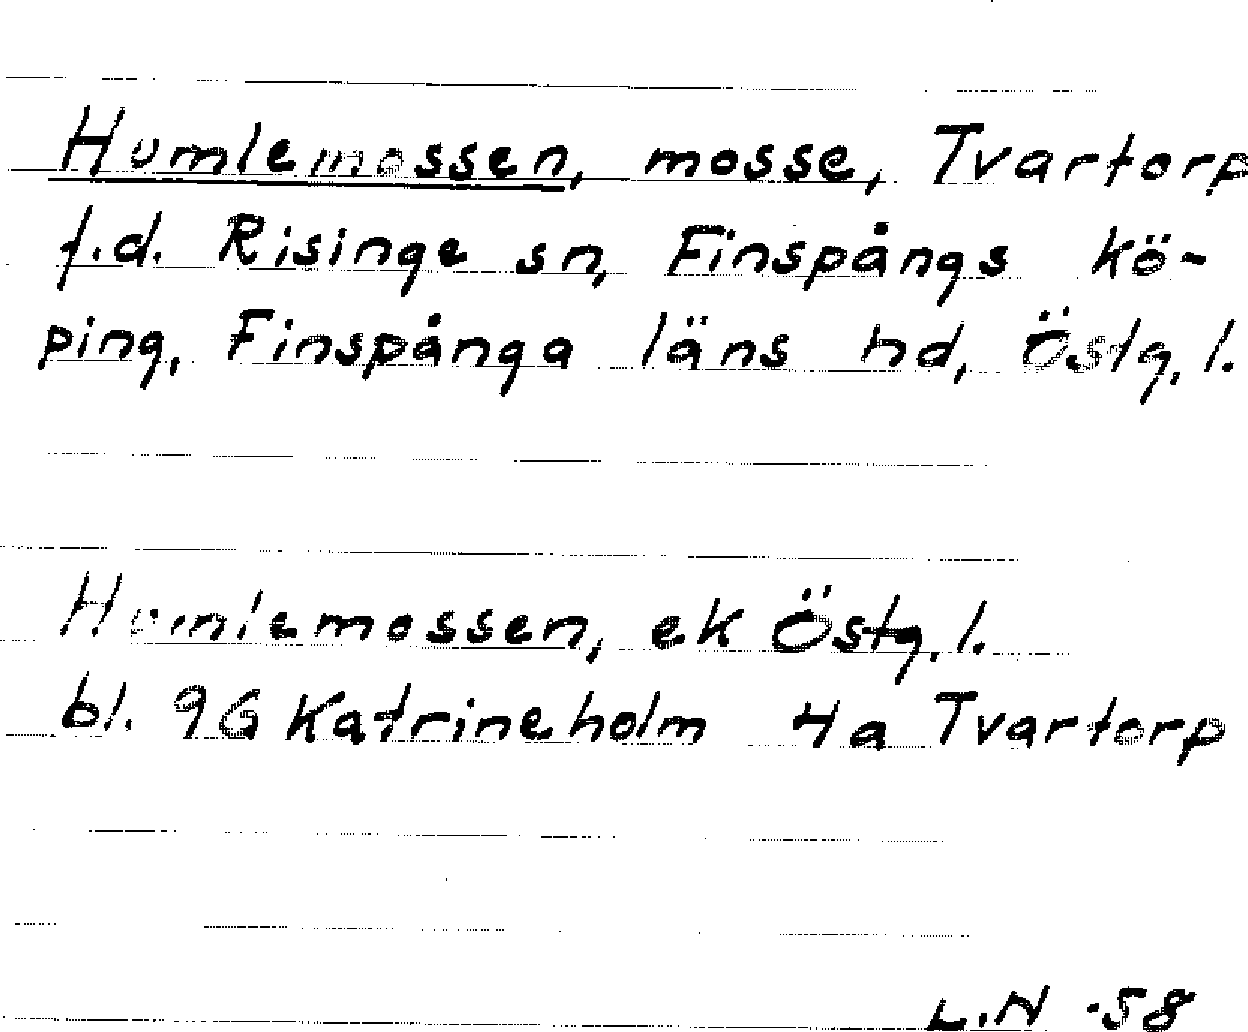 Humlemossen, mosse, Tvartorp
f.d. Risinge sn, Finspångs kö-
ping, Finspånga läns hd, Östg. l.
Humlemossen, ek Östg. l.
bl. 9G Katrineholm 4a Tvartorp
L.N .58